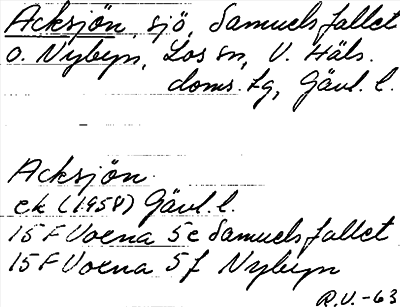 Acksjön, sjö, Samuelsfallet
o. Nybyn, Los sn, V. Häls.
doms. tg, Gävl. l.
Acksjön.
ek (1958) Gävl. l.
15 F Voxna 5e Samuelsfallet
15 F Voxna 5f Nybyn
R.V.-63